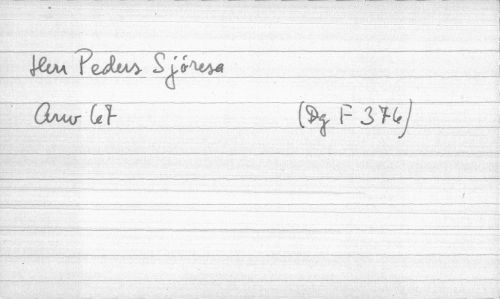 Herr Peders Sjöresa
Arw 67 (Dg F 376)